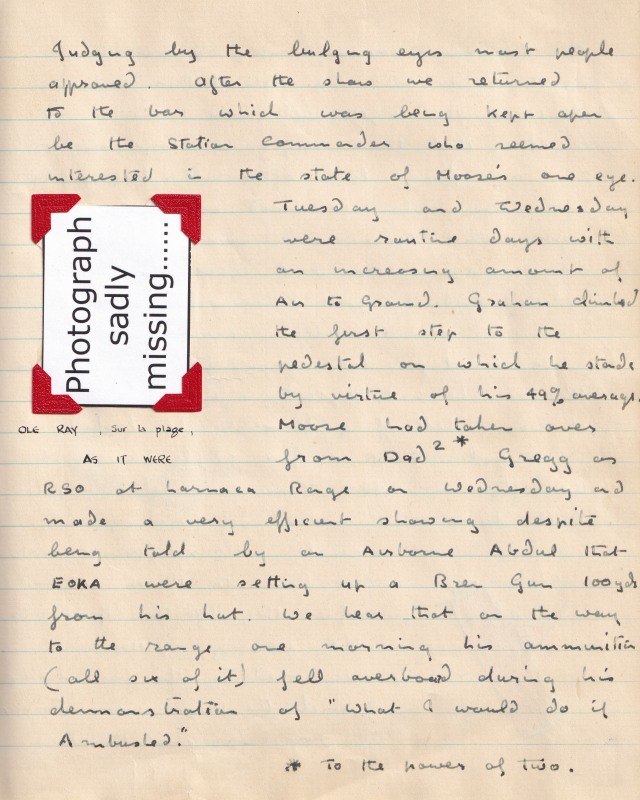 Judging by the bulging eyes most people
approved. After the show we returned
to the bar which was being kept open
be the Station Commander who seemed
interested in the state of Moose's one eye.
Photograph
sadly
missing......
OLE RAY, sur la plage,
AS IT WERE
Tuesday and Wednesday
were routine days with
an increasing amount of
Air to Ground. Graham climbed
the first step to the
pedestal on which he stands
by virtue of his 49% average.
Moose had taken over
from Dad² * Gregg as
RSO at Larnaca Range on Wednesday and
made a very efficient showing despite
being told by an Airborne Abdul that
EOKA were setting up a Bren Gun 100yds
from his hut. We hear that on the way
to the range one morning his ammunition
(all six of it) fell overboard during his
demonstration of "What I would do if
Ambushed."
* To the power of two.